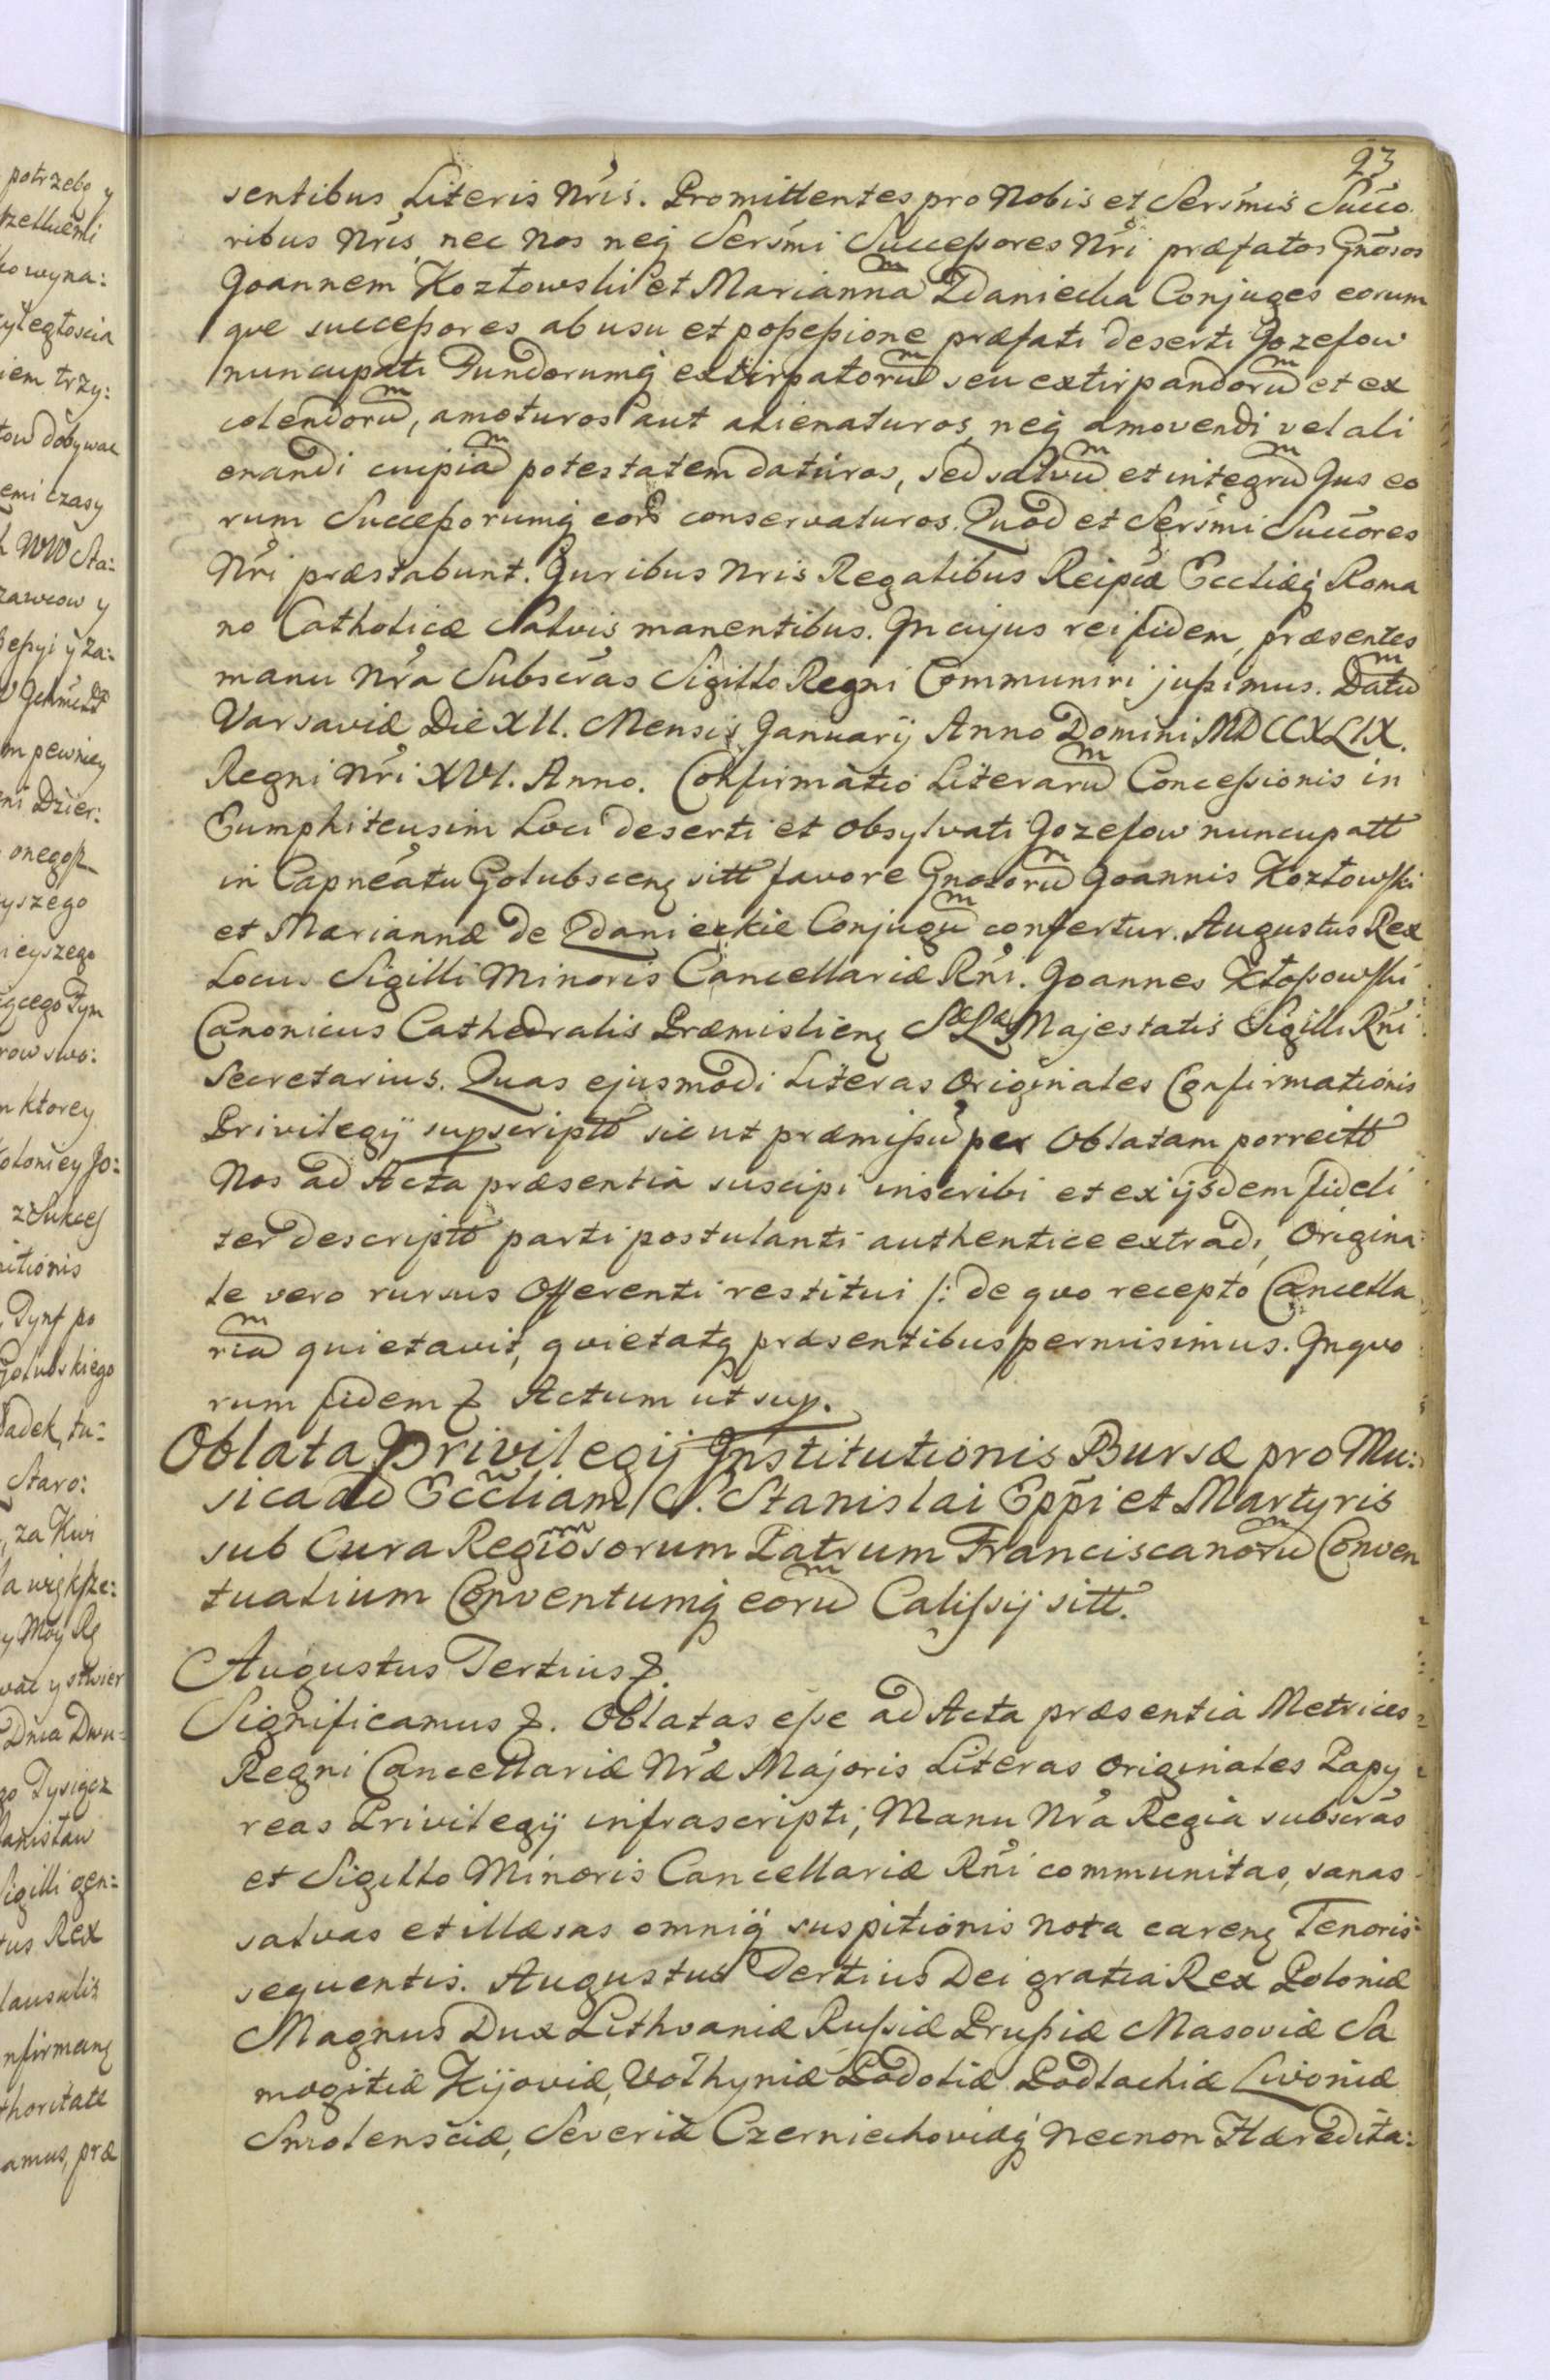 93
sentibus Literis Nris. Promittentes pro Nobis et Sersmis Succo
ribus Nris nec Nos neq Sersmi Successores Nri præfatos Gnosos
Joannem Kozłowski et Marianna Zdaniecka Conjuges eorum
que successores ab usu et possessione præfati deserti Jozefow
nuncupati Fundorumq extirpatoru seu extirpandoru et ex
colendoru, amoturos aut alienaturos, neq amovendi vel ali
enandi cuipia potestatem daturos, sed salvu et integru Jus eo
rum Successorumq eor conservaturos. Quod et Sersmi Succores
Nri præstabunt. Juribus Nris Regalibus Reipcæ Eccliæq Roma
no Catholicæ Salvis manentibus. In cujus rei fidem, præsentes
manu Nra Subscras Sigillo Regni Communiri jussimus. Datu
Varsaviæ Die XII. Mensis Januarij Anno Domini MDCCXLIX.
Regni Nri XVI. Anno. Confirmatio Literaru Concessionis in
Eumphiteusim Loci deserti et obsylvati Jozefow nuncupatt
in Capneatu Golubscenq sitt favore Gnosoru Joannis Kozłowski
et Mariannæ de Zdanieckie Conjugu confertur. Augustus Rex
Locus Sigilli Minoris Cancellariæ Rni. Joannes Kłossowski
Canonicus Cathedralis Præmislienq Sæ Ræ Majestatis Sigilli Rni
Secretarius. Quas ejusmodi Literas Originales Confirmationis
Privilegij supscriptt sicut præmissu per Oblatam porrectt
Nos ad Acta præsentia suscipi inscribi et ex ijsdem fideli
ter descriptt parti postulanti authentice extradi, Origina
le vero rursus Offerenti restitui /: de quo recepto Cancella
ria quietavit, quietatq præsentibus / permisimus. In quo
rum fidem & Actum ut sup.
Oblata Privilegij Institutionis Bursæ pro Mu:
sica ad Eccliam S. Stanislai Eppi et Martyris
sub Cura Regiosorum Patrum Franciscanoru Conven
tualium Conventumq eoru Calissij sitt.
Augustus Tertius &.
Significamus &. Oblatas esse ad Acta præsentia Metrices
Regni Cancellariæ Nræ Majoris Literas originales Papy
reas Privilegij infrascripti, Manu Nra Regia subscras
et Sigillo Minoris Cancellariæ Rni communitas, sanas
salvas et illæsas omniq suspitionis nota carenq Tenoris
sequentis. Augustus Tertius Dei gratia Rex Poloniæ
Magnus Dux Lithvaniæ Russiæ Prussiæ Masoviæ Sa
mogitiæ Kijoviæ, Volhyniæ Podoliæ Podlachiæ Livoniæ
Smolensciæ, Severiæ Czerniechoviæq Necnon Hæredita: